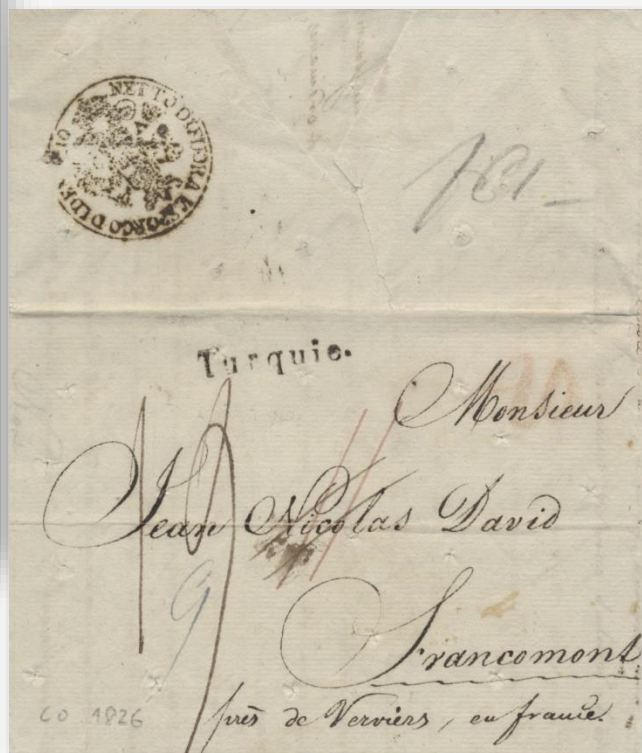 NETTO DI FUORA E SPORCO DI DENTRO
Turquie.
Monsieur
Jean Nicolas David
9
Francomont
près de Verviers, en france.
CO 1826